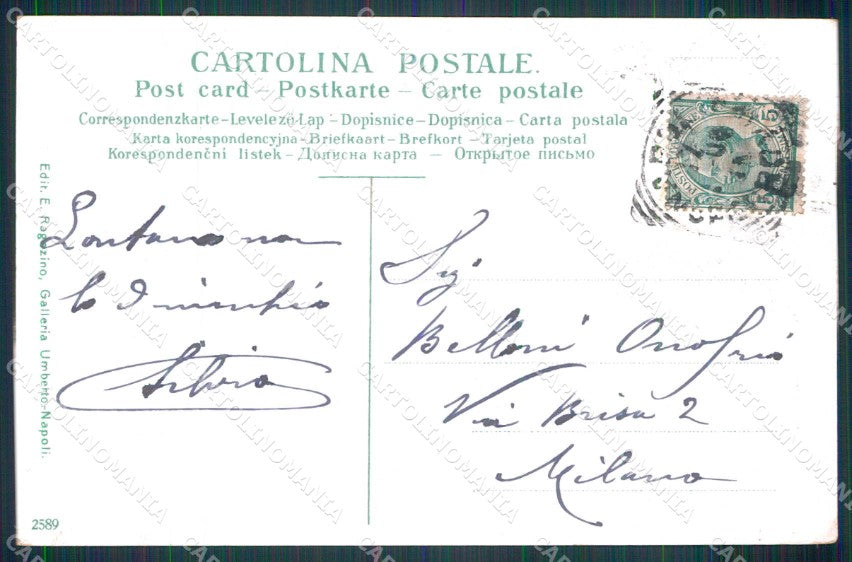 CARTOLINA POSTALE.
Post card – Postkarte – Carte postale
Correspondenzkarte – Levelező Lap – Dopisnice – Dopisnica – Carta postala
Karta korespondencyjna – Briefkaart – Brefkort – Tarjeta postal
Korespondenční listek – Дописна карта – Открытое письмо
Edit. E. Ragozino, Galleria Umberto-Napoli.
Lontano non
Silvio
Sig
Belloni Onofrio
Via Brisa 2
Milano
2589
CARTOLINOMANIA